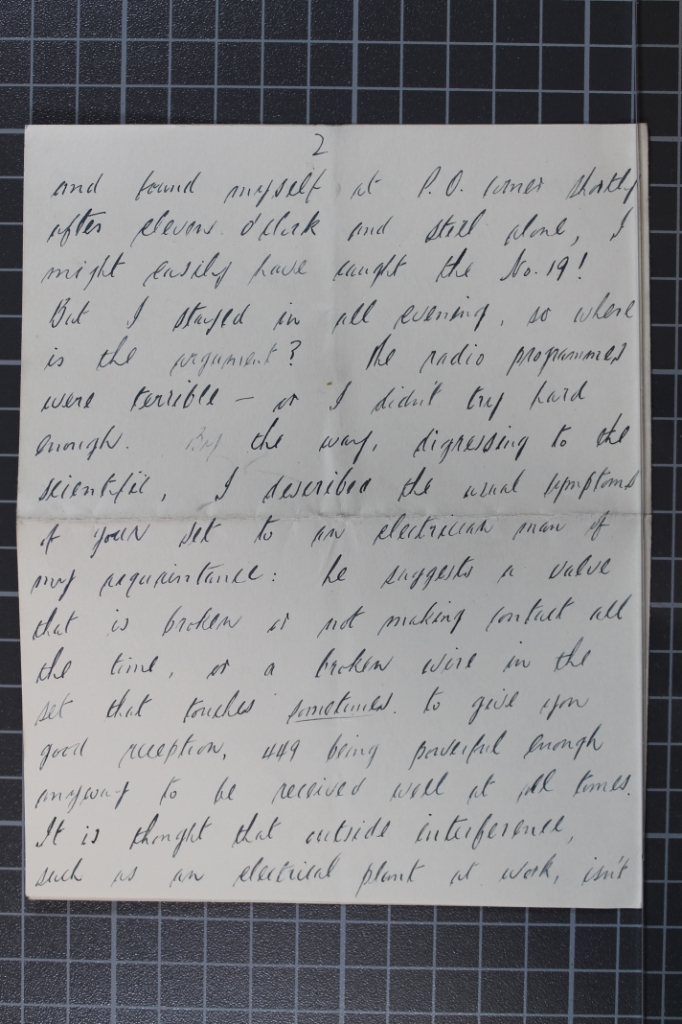 2
and found myself at P.O. corner shortly
after eleven o'clock and still alone, I
might easily have caught the No. 19!
But I stayed in all evening, so where
is the argument? The radio programmes
were terrible — or I didn't try hard
enough. By the way, digressing to the
scientific, I described the usual symptoms
of your set to an electrician man of
my acquaintance: he suggests a valve
that is broken or not making contact all
the time, or a broken wire in the
set that touches sometimes to give you
good reception, 449 being powerful enough
anyway to be received well at all times.
It is thought that outside interference,
such as an electrical plant at work, isn't